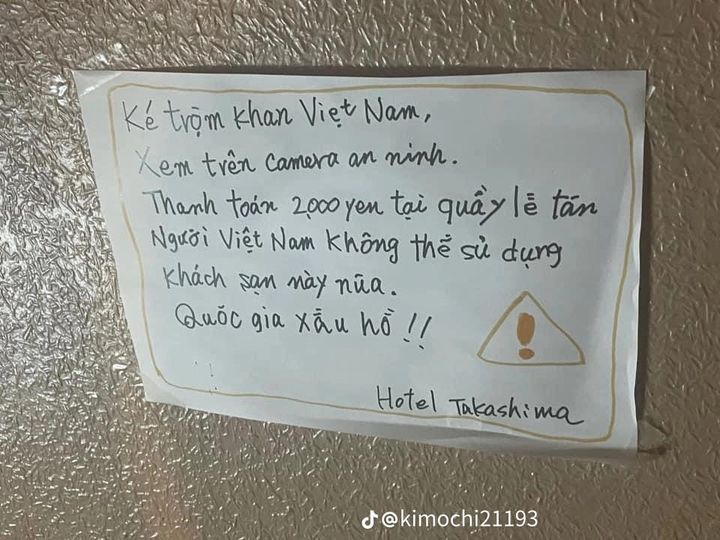 Ké trộm khan Việt Nam,
Xem trên camera an ninh.
Thanh toán 2,000 yen tại quầy lễ tân
Người Việt Nam không thể sử dụng
khách sạn này nữa.
Quốc gia xấu hổ!!
!
Hotel Takashima
@kimochi21193